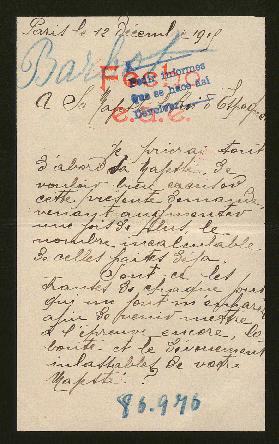 Paris le 12 Décembre 191
Barbot
Fecho
Pedir informes
que se hace así
A Sa Majesté Espagne
Je prierai tout
d'abord Sa Majesté de
vouloir bien excuser
cette présente demande
venant augmenter
une fois de plus, le
nombre incalculable
de celles faites déja.
Sont ce les
de chaque jour
qui me font m'
afin de venir mettre
à l'épreuve encore, la
bonté et le dévouement
inlassable de votre
Majesté ?
86.976